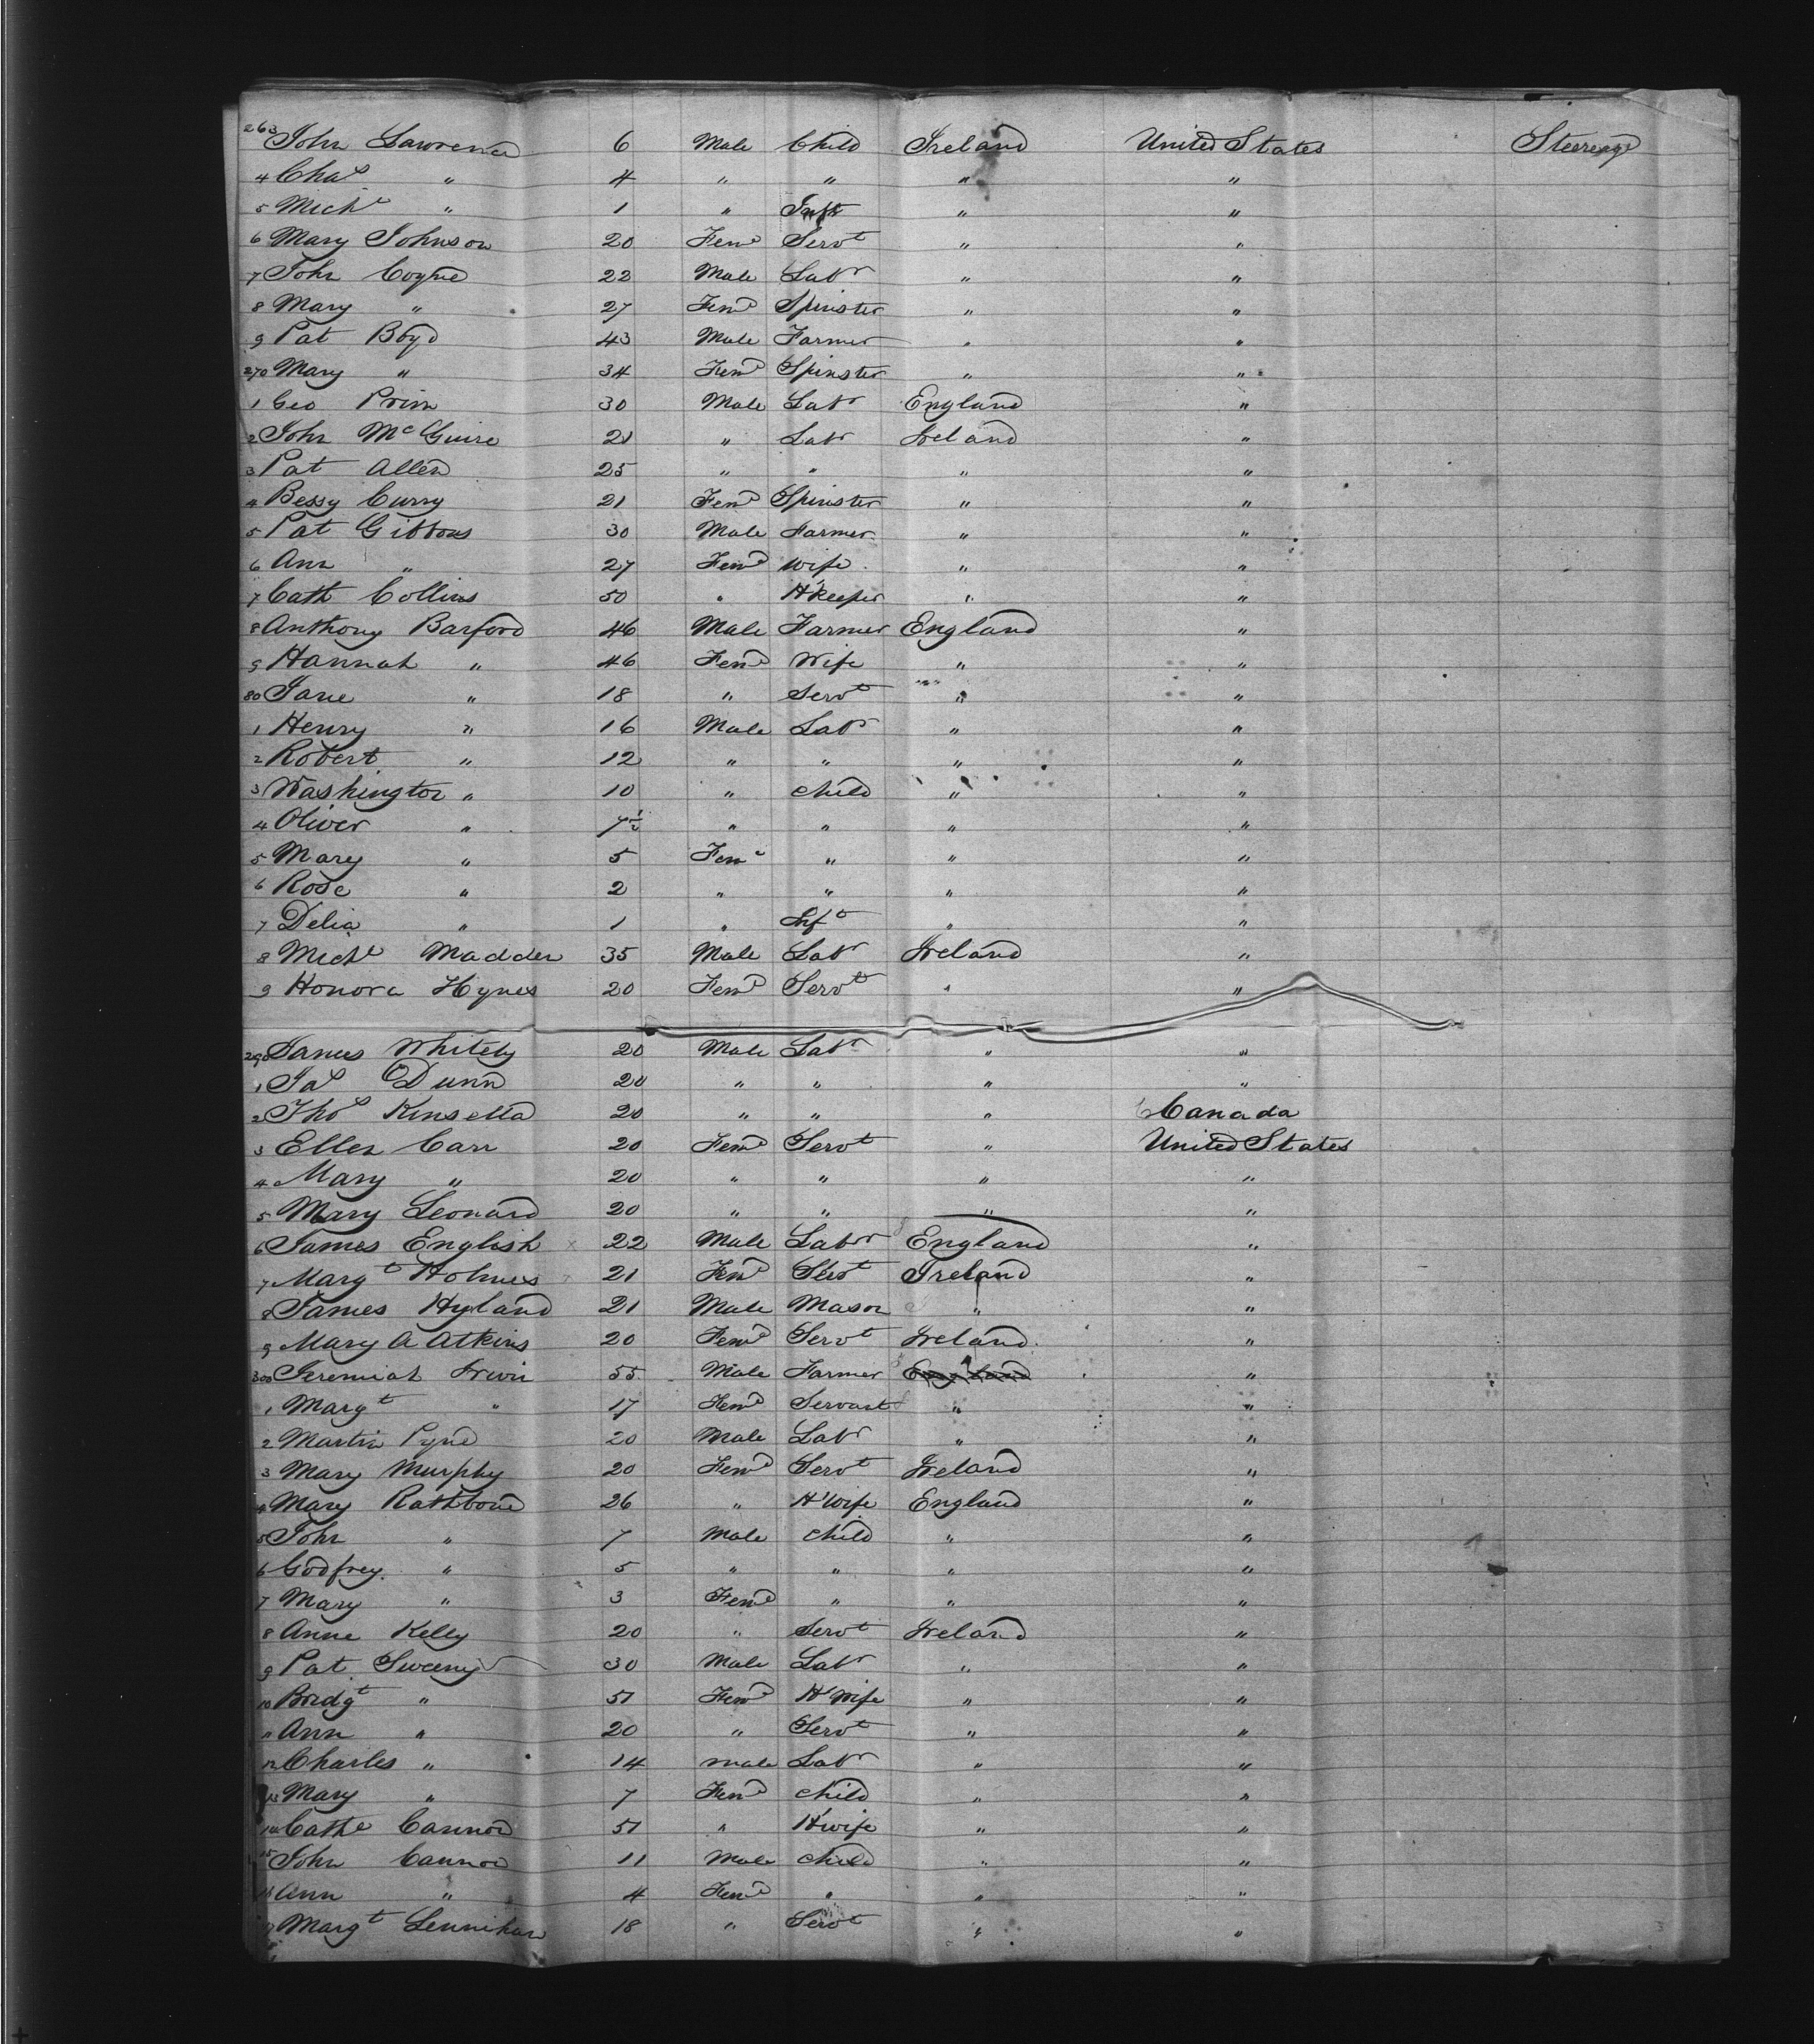 263 John Lawrence 6 Male Child Ireland United States Steerage
4 Chas " 4 " " " "
5 Michl " 1 " Inft " "
6 Mary Johnson 20 Feme Servt " "
7 John Coyne 22 Male Labr " "
8 Mary " 27 Feme Spinster " "
9 Pat Boyd 43 Male Farmer " "
270 Mary " 34 Feme Spinster " "
1 Geo Prim 30 Male Labr England "
2 John McGuire 21 " Labr Ireland "
3 Pat Allen 25 " " " "
4 Bessy Curry 21 Feme Spinster " "
5 Pat Gibbons 30 Male Farmer " "
6 Ann " 27 Feme Wife " "
7 Cath Collins 50 " H'Keeper " "
8 Anthony Barford 46 Male Farmer England "
9 Hannah " 46 Feme Wife " "
80 Jane " 18 " Servt " "
1 Henry " 16 Male Labr " "
2 Robert " 12 " " " "
3 Washington " 10 " child " "
4 Oliver " 7½ " " " "
5 Mary " 5 Feme " " "
6 Rose " 2 " " " "
7 Delia " 1 " Inft " "
8 Michl Madden 35 Male Labr Ireland "
9 Honora Hynes 20 Feme Servt " "
290 James Whitely 20 Male Labr " "
1 Jas O'Dunn 20 " " " "
2 Thos Kinsella 20 " " " Canada
3 Ellen Carr 20 Feme Servt " United States
4 Mary " 20 " " " "
5 Mary Leonard 20 " " " "
6 James English 22 Male Labr England "
7 Margt Holmes 21 Feme Servt Ireland "
8 James Hyland 21 Male Mason " "
9 Mary A Atkins 20 Feme Servt Ireland "
300 Jeremiah Irwin 55 Male Farmer England "
1 Margt " 17 Feme Servant " "
2 Martin Pyne 20 Male Labr " "
3 Mary Murphy 20 Feme Servt Ireland "
4 Mary Rathbone 26 " H'Wife England "
5 John " 7 Male child " "
6 Godfrey " 5 " " " "
7 Mary " 3 Feme " " "
8 Anne Kelly 20 " Servt Ireland "
9 Pat Sweeny 30 Male Labr " "
10 Bridgt " 51 Feme H'Wife " "
11 Ann " 20 " Servt " "
12 Charles " 14 male Labr " "
13 Mary " 7 Feme child " "
14 Cathe Cannon 51 " H'wife " "
15 John Cannon 11 Male child " "
16 Ann " 4 Feme " " "
17 Margt Lennihan 18 " Servt " "